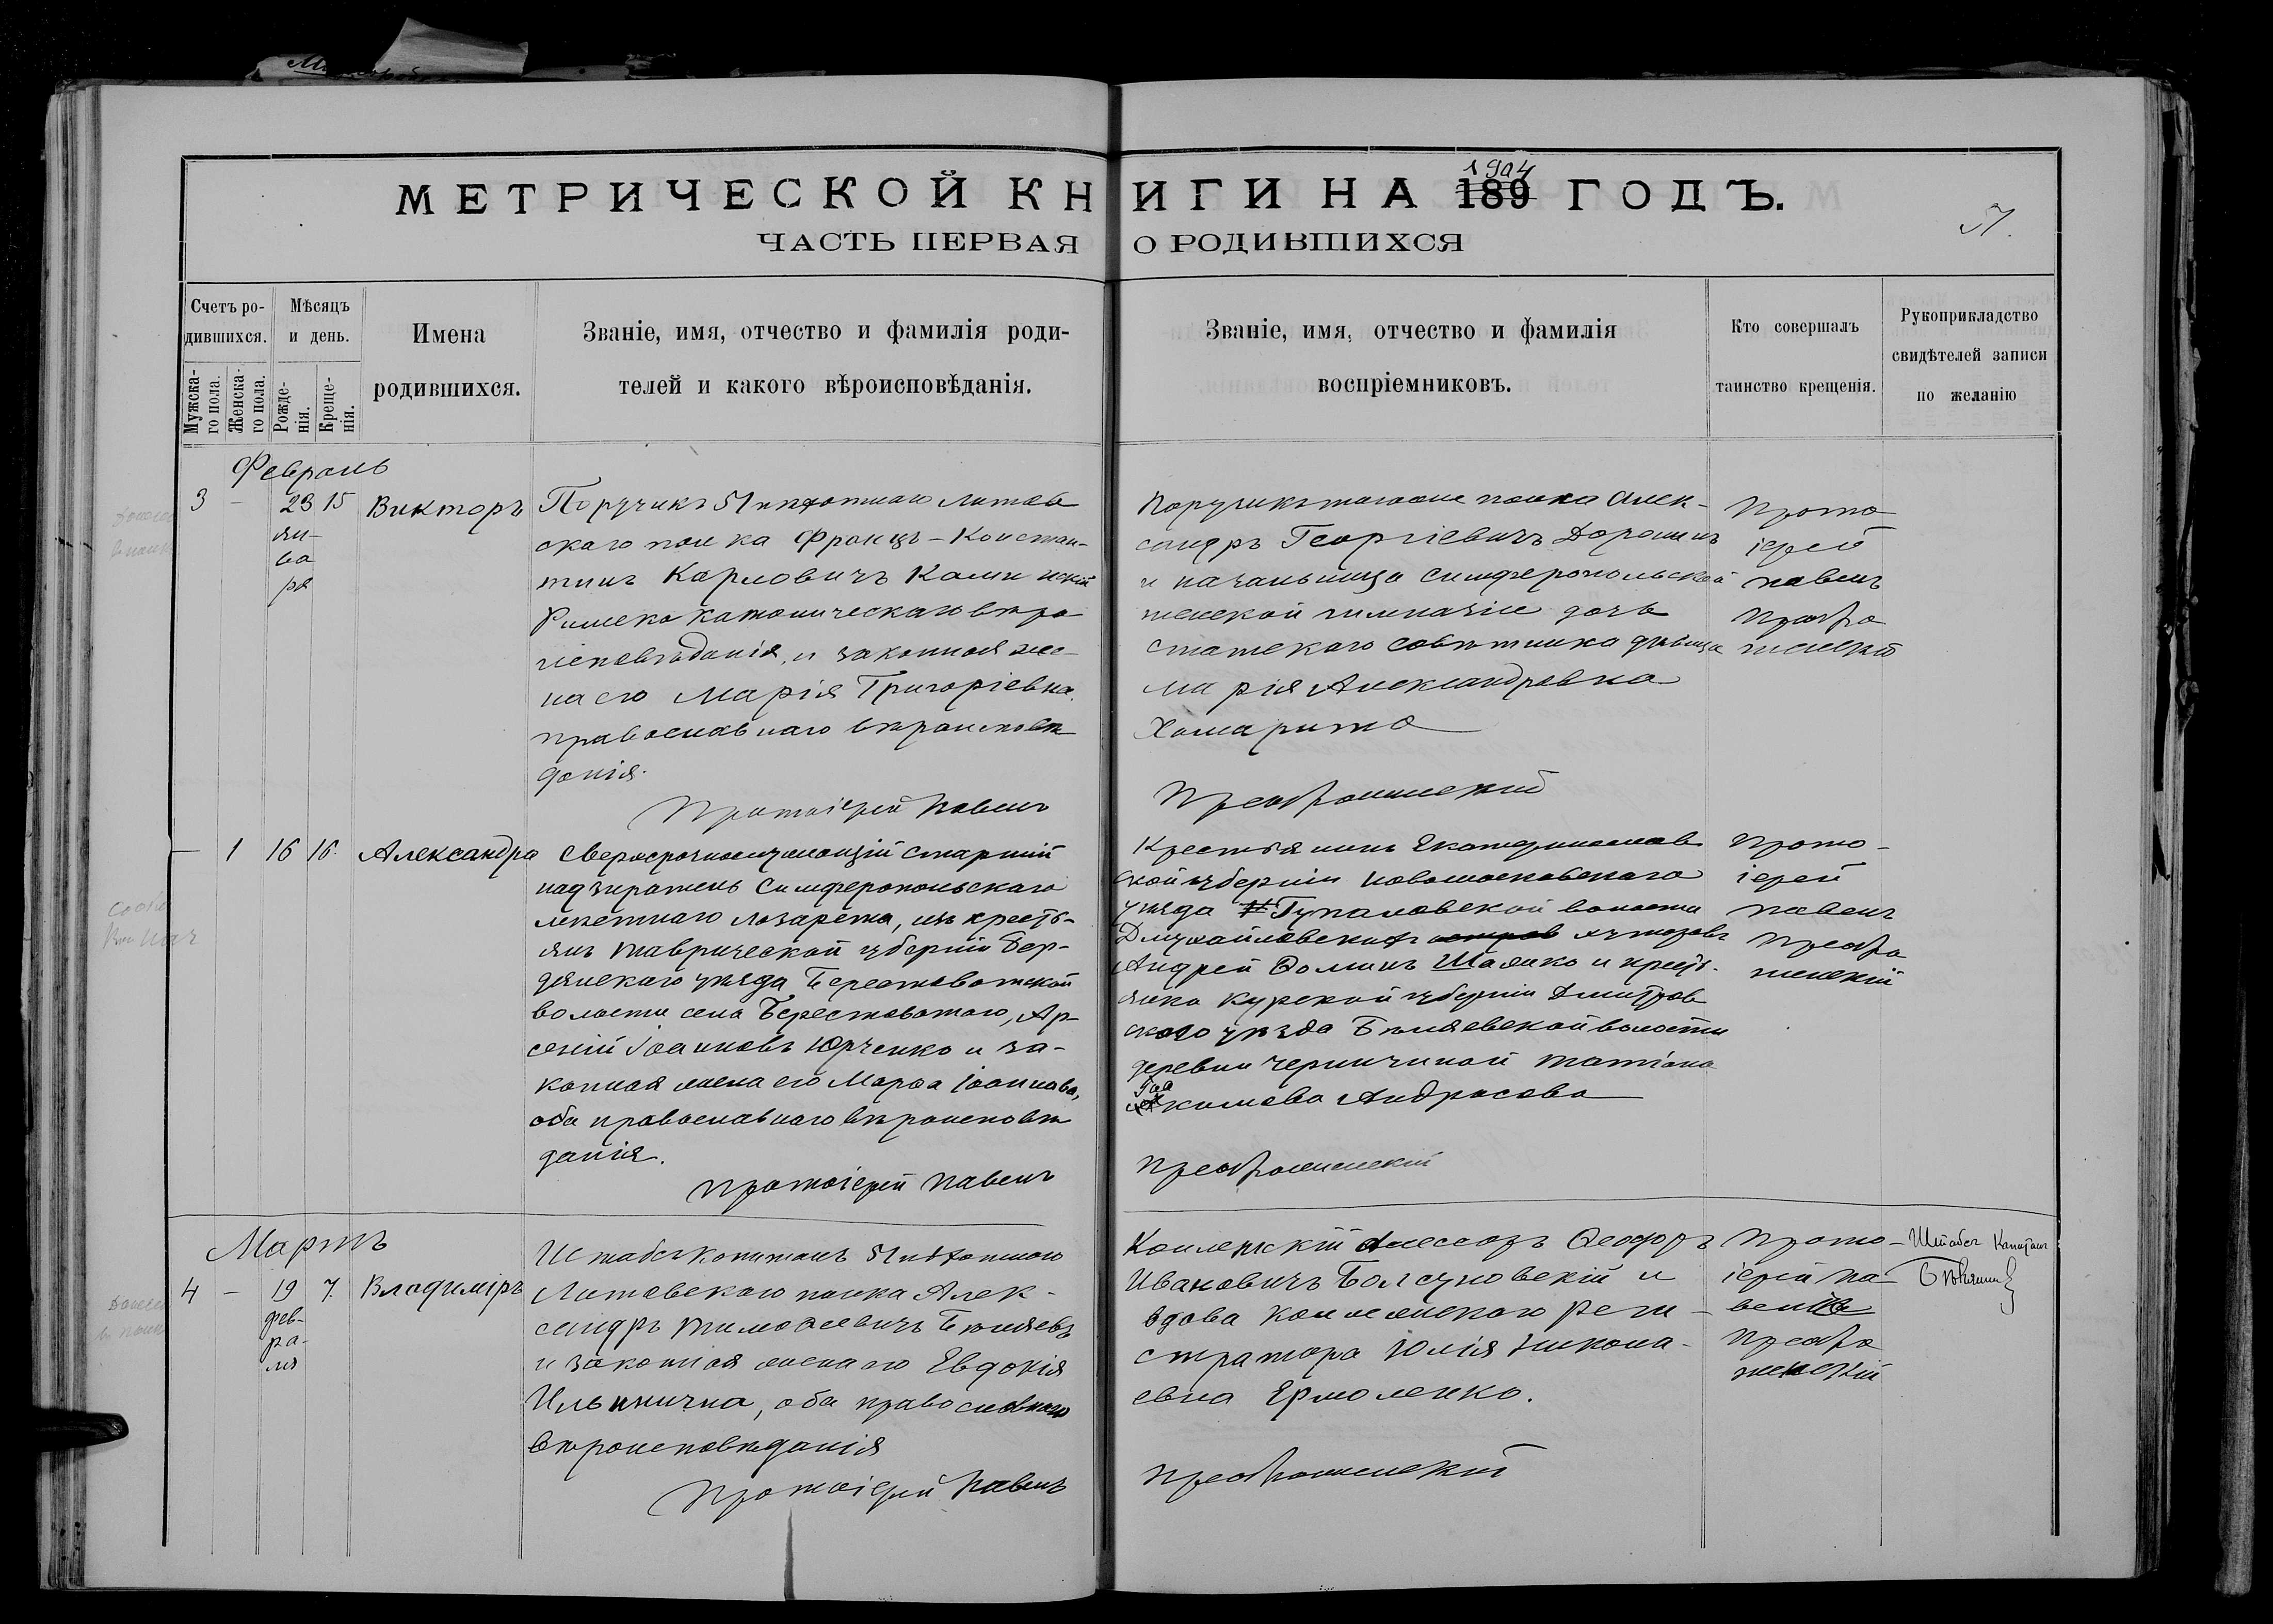 МЕТРИЧЕСКОЙ КНИГИ НА 189 ГОДЪ.
1904
ЧАСТЬ ПЕРВАЯ О РОДИВШИХСЯ
Счетъ ро-
дившихся.
Мужска-
го пола.
Женска-
го пола.
Мѣсяцъ
и день.
Рожде-
нія.
Креще-
нія.
Имена
родившихся.
Званіе, имя, отчество и фамилія роди-
телей и какого вѣроисповѣданія.
Званіе, имя, отчество и фамилія
воспріемниковъ.
Кто совершалъ
таинство крещенія.
Рукоприкладство
свидѣтелей записи
по желанію
Февраль
3 - 23 15 Викторъ
ян-
ва
ря
Поручикъ 51 пѣхотнаго Литов
скаго полка Францъ-Констан-
тинъ Карловичъ Каминскій
Римско католическаго вѣро
исповѣданія, и законная же-
на его Марія Григоріевна
православнаго вѣроисповѣ
данія.
Протоіерей Павелъ
Поручикъ того же полка Алек-
сандръ Георгіевичъ Доронинъ
и начальница Симферопольской
женской гимназіи дочь
статскаго совѣтника дѣвица
Марія Александровна
Преображенскій
Прото
іерей
Павелъ
Преобра
женскій
- 1 16 16 Александра
Сверхсрочнослужащій старшій
надзиратель Симферопольскаго
мѣстнаго лазарета, изъ кресть-
янъ Таврической губерніи Бер-
дянскаго уѣзда Берестоватской
волости села Берестоватаго, Ар-
сеній Іоанновъ Юрченко и за-
конная жена его Марѳа Іоаннова,
оба православнаго вѣроисповѣ
данія.
Протоіерей Павелъ
Крестьянинъ Екатеринослав
ской губерніи Новомосковскаго
уѣзда Гупаловской волости
хуторовъ
Андрей Ѳоминъ и кресть-
янка Курской губерніи Дмитров
скаго уѣзда Бѣляевской волости
деревни Черничиной Татіана
кимова Андросова
Преображенскій
Прото-
іерей
Павелъ
Преобра
женскій
Мартъ
4 - 19 7. Владиміръ
фев-
ра-
ля
Штабсъ капитанъ 51 пѣхотнаго
Литовскаго полка Алек-
сандръ Тимоѳеевичъ Бѣляевъ
и законная жена его Евдокія
Ильинична, оба православнаго
вѣроисповѣданія
Протоіерей Павелъ
Коллежскій Ассесоръ Ѳеодоръ
Ивановичъ Болсуновскій и
вдова коллежскаго реги-
стратора Юлія Никола-
евна Ермоленко.
Преображенскій
Прото-
іерей Па-
велъ
Преобра
женскій
Штабсъ Капитанъ